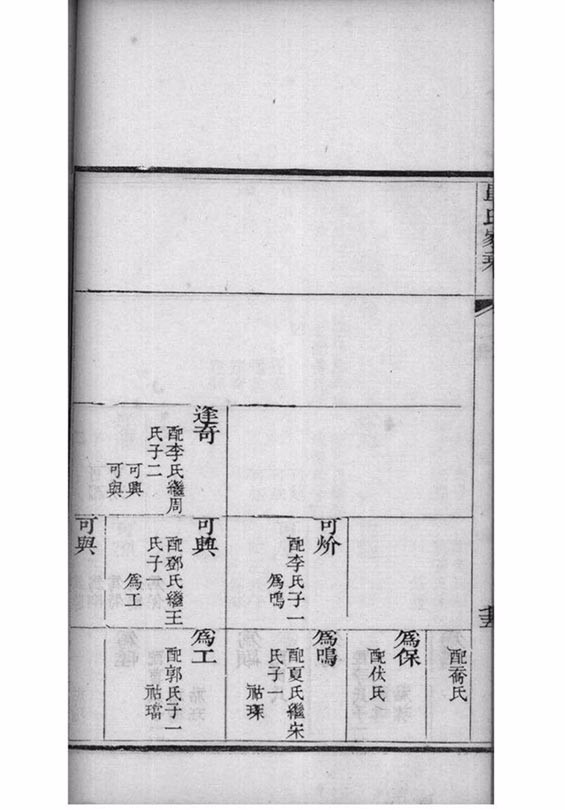 氏家乘
逢奇
配李氏繼周
氏子二
可興
可與
可炌
配李氏子一
爲鳴
可興
配鄧氏繼王
氏子一
爲工
可與
配喬氏
爲保
配伏氏
爲鳴
配夏氏繼宋
氏子一
祜琛
爲工
配郭氏子一
祜璫